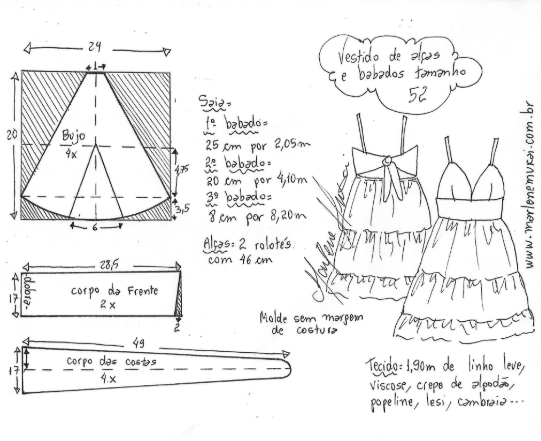 Vestido de alças
e babados tamanho
52
24
1
20
Bujo
4x
4,75
3,5
6
Saia=
1º babado=
25 cm por 2,05m
2º babado=
20 cm por 4,10m
3º babado=
8 cm por 8,20m
Alças= 2 rolotés
com 46 cm
28,5
17
dobra
corpo da Frente
2x
2
49
17
corpo das costas
4x
Molde sem margem
de costura
Marlene Mukai
www.marlenemukai.com.br
Tecido= 1,90m de linho leve,
viscose, crepe de algodão,
popeline, lesi, cambraia...